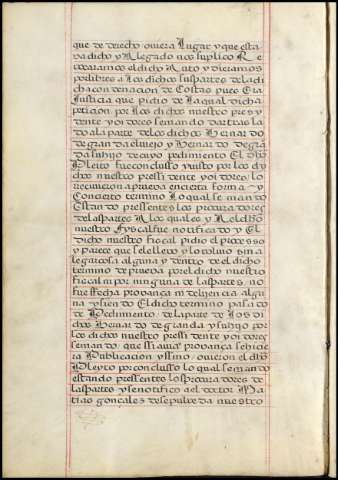 que de derecho oviera lugar y que esta
va dicho y Alegado nos suplico Re
vocaramos el dicho Auto y dieramos
por libres a los dichos sus partes de la di
cha condenacion de Costas pues Era
Justicia que pidio de la qual dicha
peticion por los dichos nuestro presy
dente yoidores se mando dar tras la
do a la parte de los dichos Hernardo
de granda el viejo y Hernardo de gran
da su hijo de cuyo pedimiento El dho
Pleito fue concluso y visto por los di
chos nuestro pressidente yoidores lo
rrecivieron a prueva en cierta forma y
Concierto termino lo qual se mando
Estando pressentes los procuradores
de las partes A los quales y Al el dho
nuestro fyscal fue notificado y El
dicho nuestro fiscal pidio el processo
y parece que se le llevo y lo tolvio sin a
legar cosa alguna y dentro de el dicho
termino de prueva por el dicho nuestro
fiscal ni por ninguna de las partes no
fue ffecha provança ni deligencia algu
na y siendo El dicho termino pasado
de Pedimiento de la parte de los di
chos Hernardo de granda y su hijo por
los dichos nuestro pressidente yoidores
se mando que ssi avia provança se hicie
ra Publicacion y ssino ovieron el dho
Pleyto por conclusso lo qual se mando
estando pressentes los procuradores de
las partes y se notifico al doctor Ma
tias gonçales de sepulveda nuestro